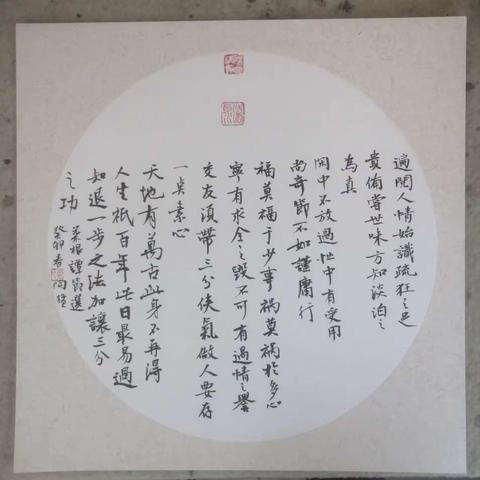 遍閱人情始識疏狂之足
貴備嘗世味方知淡泊之
為真
閑中不放過忙中有受用
尚奇節不如謹庸行
福莫福于少事禍莫禍於多心
寧有求全之毀不可有過情之譽
交友須帶三分俠氣做人要存
一点素心
天地有萬古此身不再得
人生祇百年此日最易過
知退一步之法加讓三分
之功
菜根譚節選
癸卯春